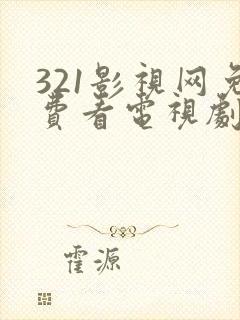 321影視网免
費看電視劇
霍源